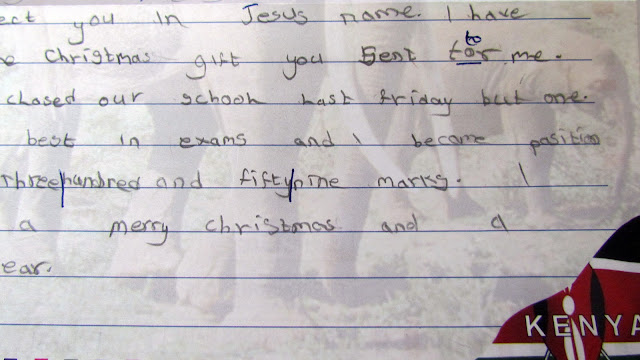 ect you in Jesus name. I have
e Christmas gift you sent to for me.
closed our school last friday but one.
best in exams and I became position
three hundred and fifty nine marks. I
a merry christmas and a
ear.
KENYA